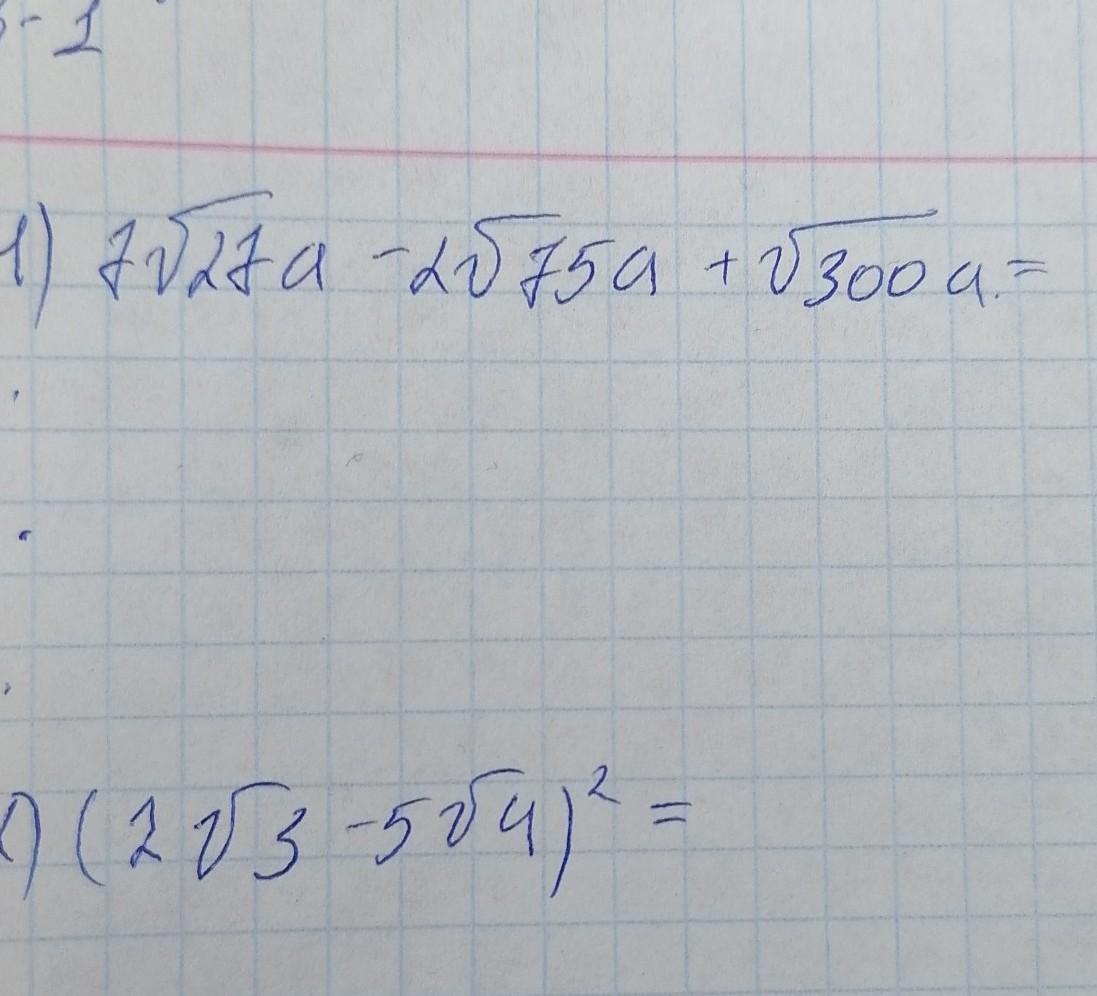 -1
1) 7√27a - 2√75a + √300a =
(2√3 - 5√4)² =